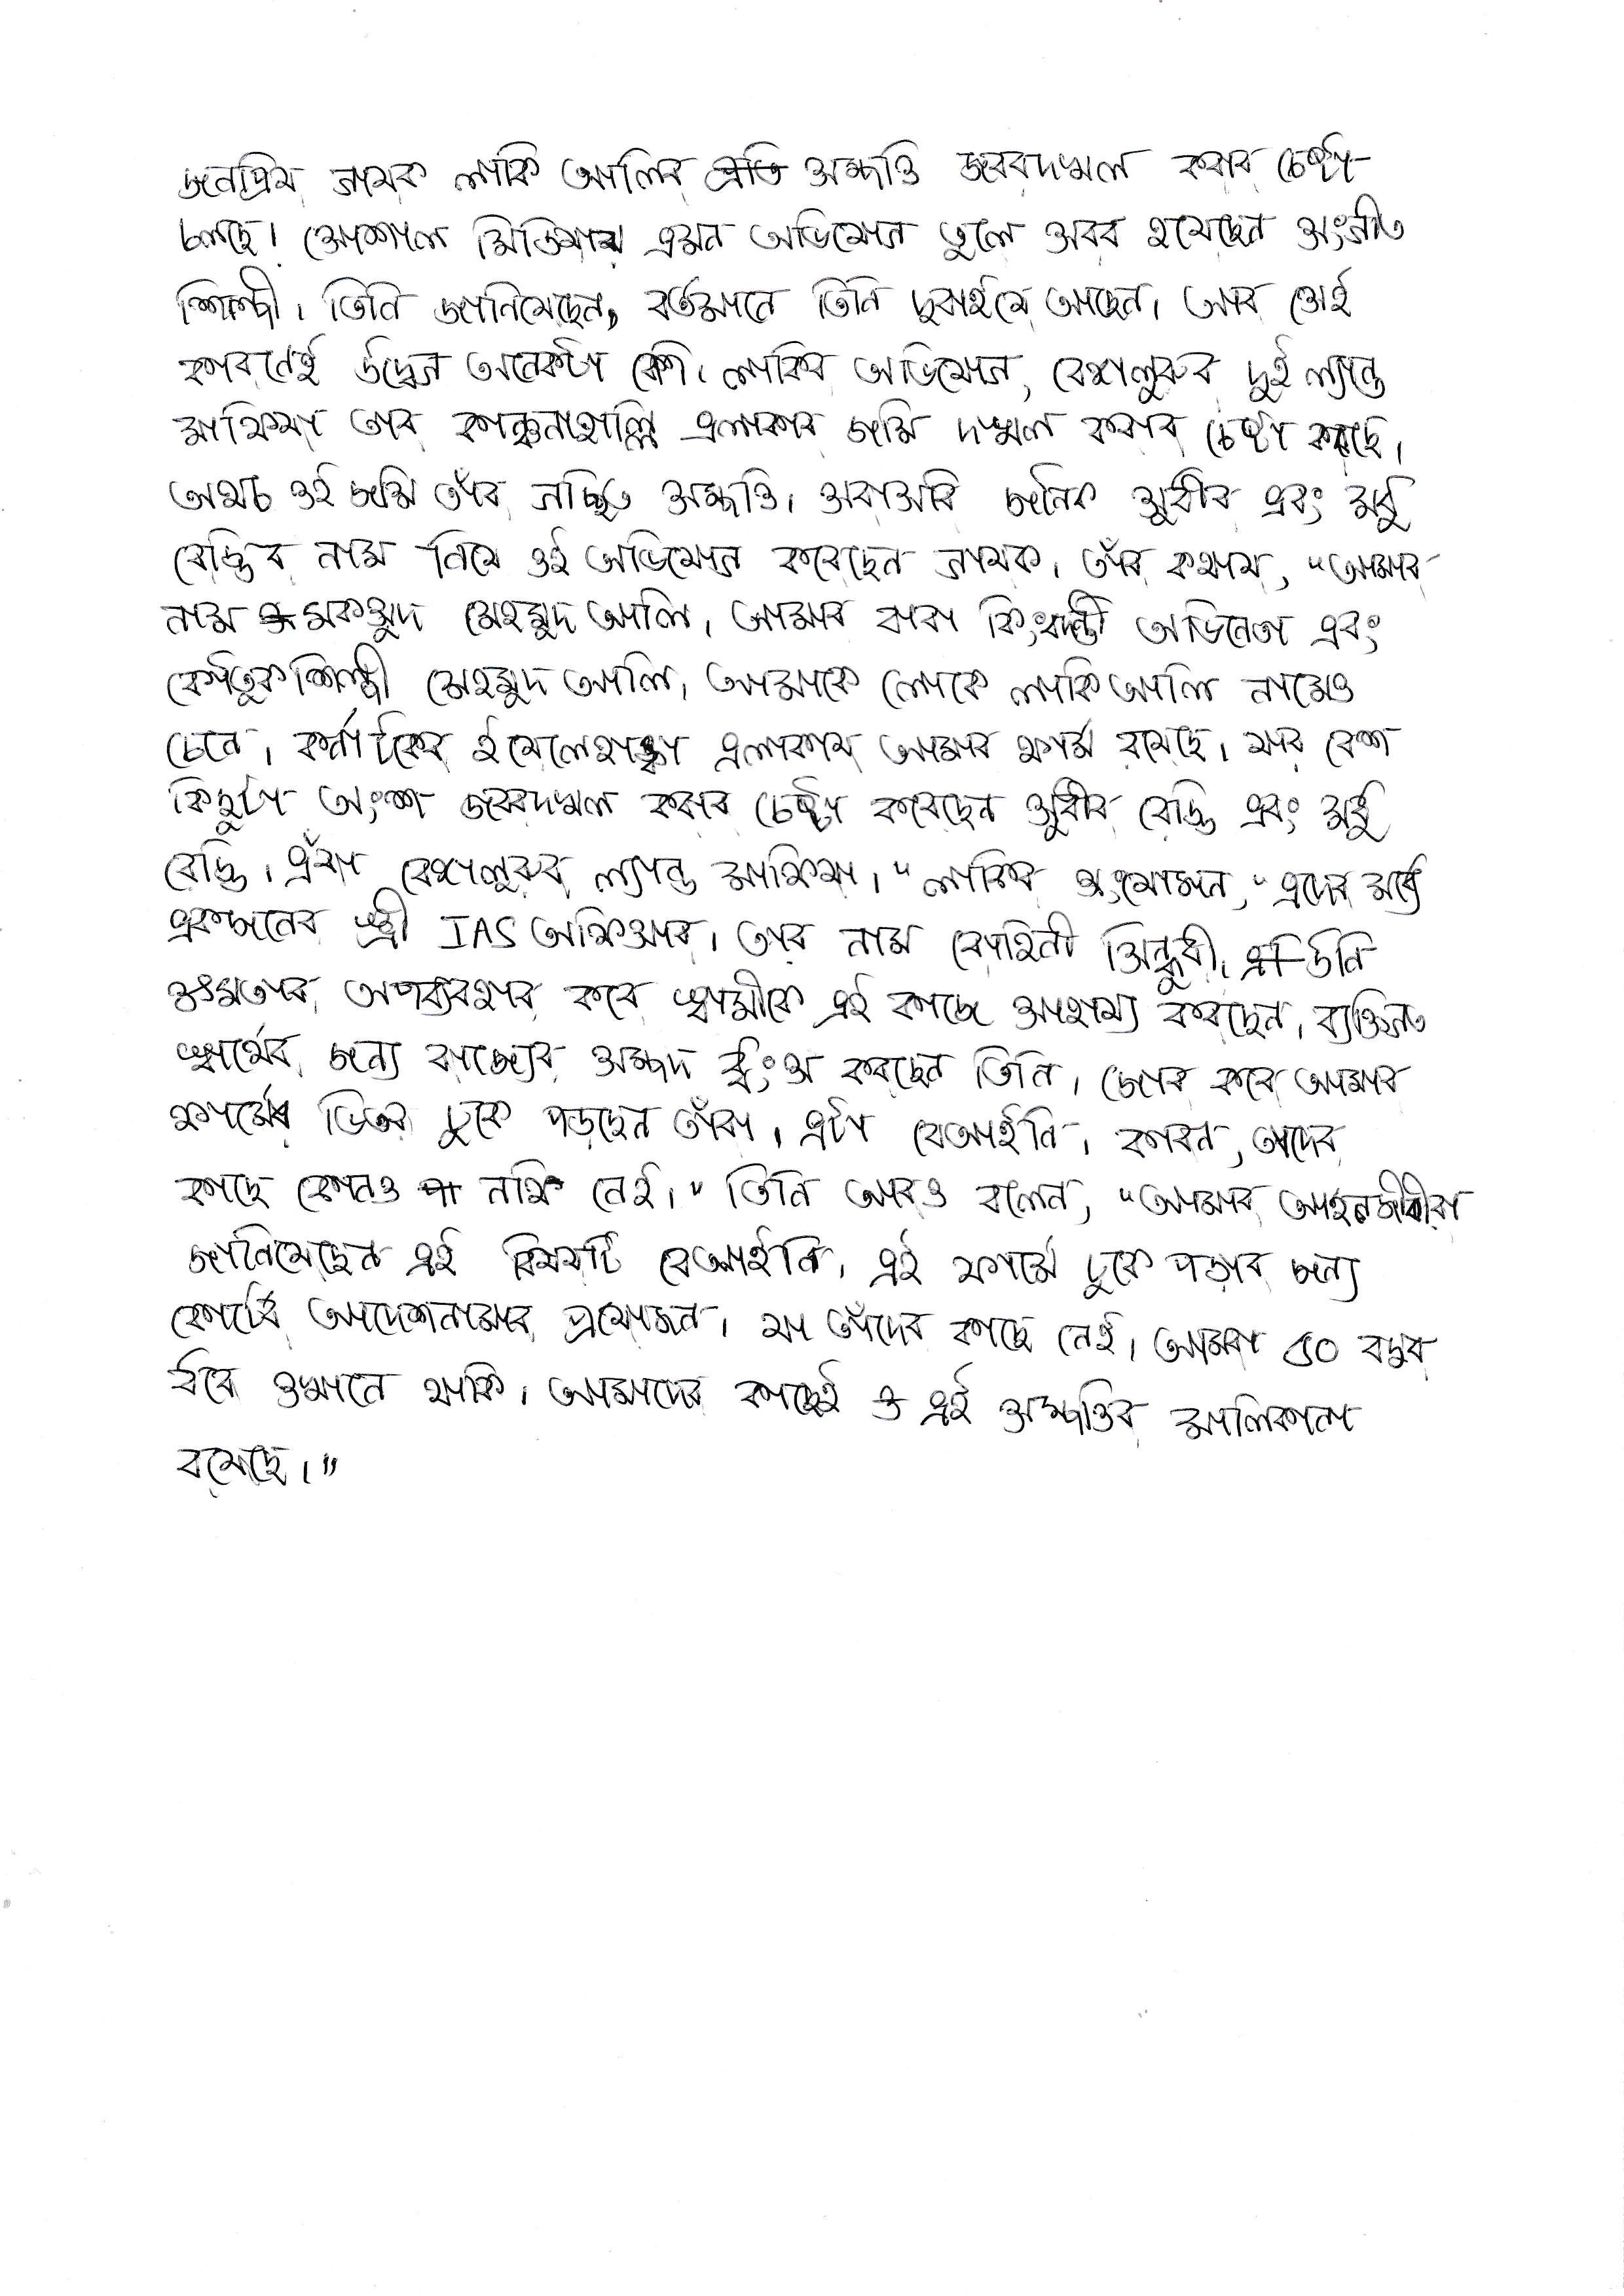 জনপ্রিয় গায়ক লাকি আলির সম্পত্তি জবরদখল করার চেষ্টা
চলছে। সোশাল মিডিয়ায় এমন অভিযোগ তুলে সরব হয়েছেন সংগীত
শিল্পী। তিনি জানিয়েছেন, বর্তমানে তিনি দুবাইয়ে আছেন। আর সেই
কারনেই উদ্বেগ অনেকটা বেশী। লাকির অভিযোগ, বেঙ্গালুরুর দুই ল্যান্ড
মাফিয়া তার কাঞ্চনাহাল্লি এলাকার জমি দখল করার চেষ্টা করছে।
অথচ ওই জমি তাঁর গচ্ছিত সম্পত্তি। সরাসরি জনৈক সুধীর এবং মধু
রেড্ডির নাম নিয়ে ওই অভিযোগ করেছেন গায়ক। তাঁর কথায়, "আমার
নাম মকসুদ মেহমুদ আলি। আমার বাবা কিংবদন্তী অভিনেতা এবং
কৌতুকশিল্পী মেহমুদ আলি। আমাকে লোকে লাকি আলি নামেও
চেনে। কর্নাটকের ইয়েলেহাঙ্কা এলাকায় আমার ফার্ম রয়েছে। যার বেশ
কিছুটা অংশ জবরদখল করার চেষ্টা করেছেন সুধীর রেড্ডি এবং মধু
রেড্ডি। এঁরা বেঙ্গালুরুর ল্যান্ড মাফিয়া।" লাকির সংযোজন, "এদের মধ্যে
একজনের স্ত্রী IAS অফিসার। তার নাম রোহিনী সিন্ধুরী। উনি
ক্ষমতার অপব্যবহার করে স্বামীকে এই কাজে সাহায্য করছেন। ব্যক্তিগত
স্বার্থের জন্য রাজ্যের সম্পদ ধ্বংস করছেন তিনি। জোর করে আমার
ফার্মের ভিতর ঢুকে পড়ছেন তাঁরা। এটা বেআইনি। কারন, তাদের
কাছে কোনও নথি নেই।" তিনি আরও বলেন, "আমার আইনজীবীরা
জানিয়েছেন এই বিষয়টি বেআইনি। এই ফার্মে ঢুকে পড়ার জন্য
কোর্টের আদেশনামার প্রয়োজন। যা তাঁদের কাছে নেই। আমরা ৫০ বছর
ধরে ওখানে থাকি। আমাদের কাছেই এই সম্পত্তির মালিকানা
রয়েছে।"